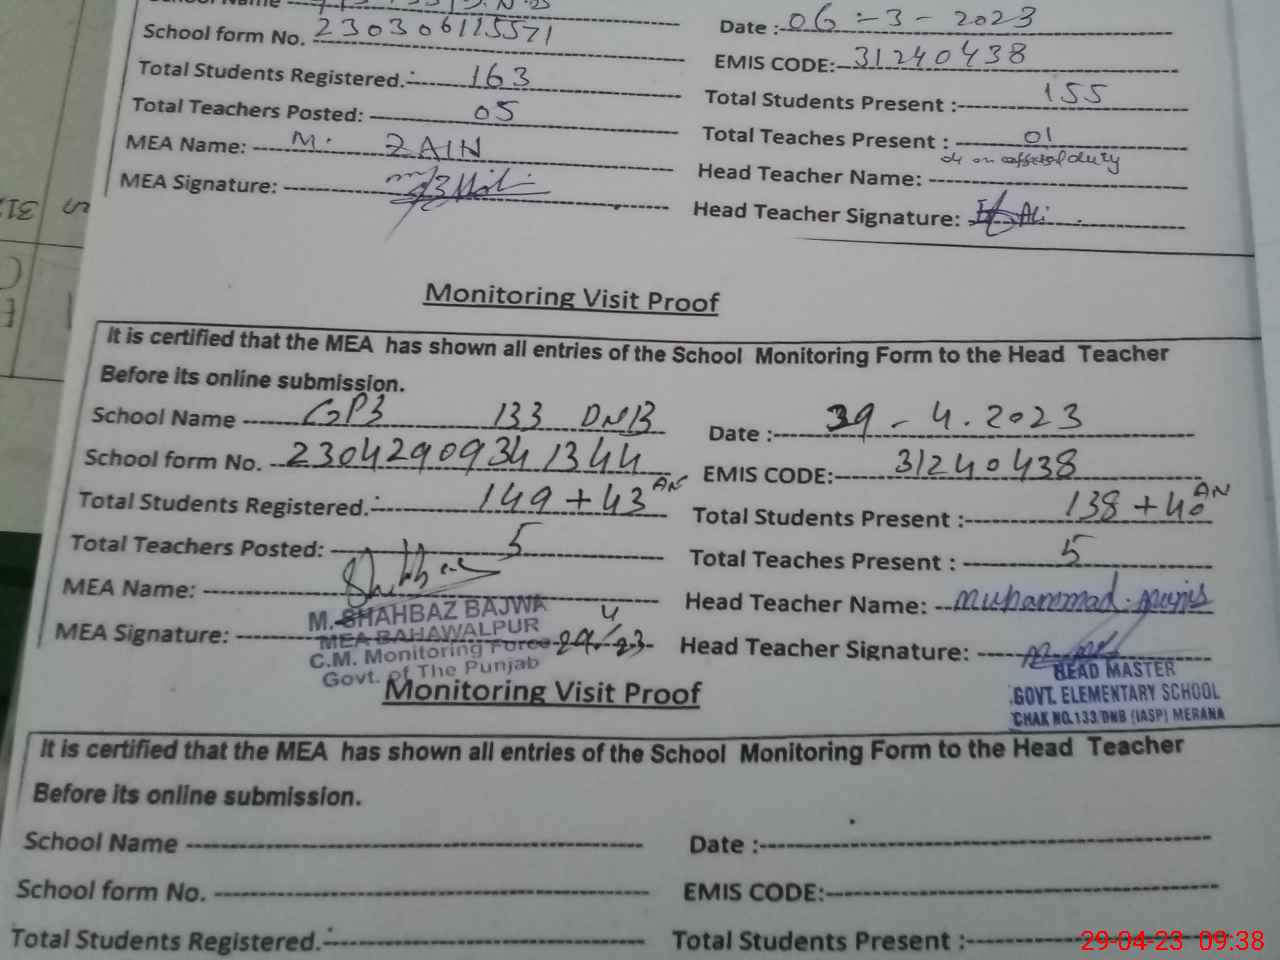 School form No. 230306115571
Date : 06-3-2023
EMIS CODE: 31240438
Total Students Registered.: 163
Total Students Present : 155
Total Teachers Posted: 05
Total Teaches Present : 01
on duty
MEA Name: M. ZAIN
Head Teacher Name:
MEA Signature:
Head Teacher Signature: Ali
Monitoring Visit Proof
It is certified that the MEA has shown all entries of the School Monitoring Form to the Head Teacher
Before its online submission.
School Name GPS 133 DNB
Date : 29-4.2023
School form No. 23042909341344
EMIS CODE: 31240438
Total Students Registered.: 149+43 AN
Total Students Present : 138+40 AN
Total Teachers Posted: 5
Total Teaches Present : 5
MEA Name:
Head Teacher Name: Muhammad
M. SHAHBAZ BAJWA
MEA BAHAWALPUR
C.M. Monitoring Force
Govt. of The Punjab
MEA Signature: 29/4/23
Head Teacher Signature:
HEAD MASTER
GOVT. ELEMENTARY SCHOOL
CHAK NO.133/DNB (IASP) MERANA
Monitoring Visit Proof
It is certified that the MEA has shown all entries of the School Monitoring Form to the Head Teacher
Before its online submission.
School Name
Date :
School form No.
EMIS CODE:
Total Students Registered.
Total Students Present :
29-04-23 09:38